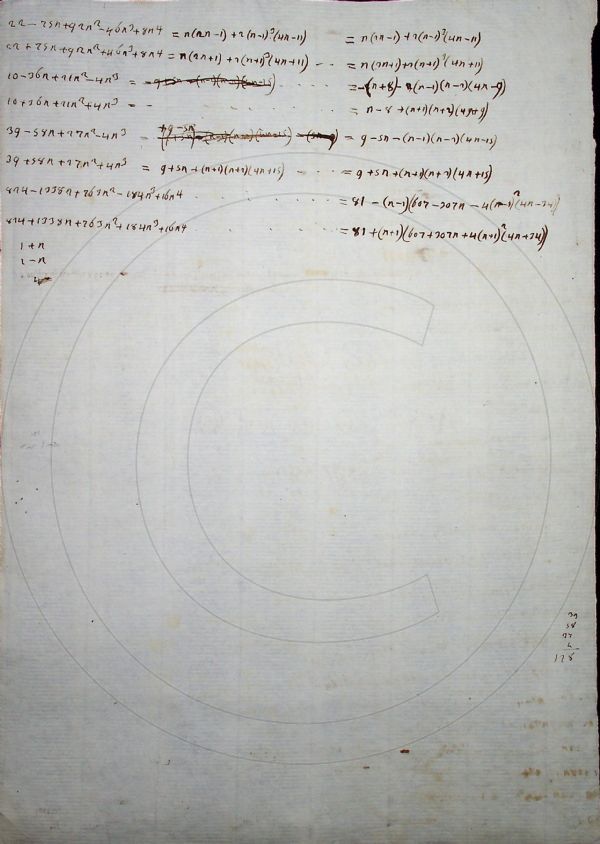 22 - 75n + 92n² - 46n³ + 8n4 = n(2n-1) + 2(n-1)³(4n-11) = n(2n-1) + 2(n-1)³(4n-11)
22 + 75n + 92n² + 46n³ + 8n4 = n(2n+1) + 2(n+1)³(4n+11) . . = n(2n+1) + 2(n+1)³(4n+11)
10 - 36n + 21n² - 4n³ = . . . . = -(n+8) - (n-1)(n-2)(4n-9)
10 + 36n + 21n² + 4n³ = . . . . . . = n-8 + (n+1)(n+2)(4n+9)
39 - 58n + 27n² - 4n³ = +9 - 5n = 9 - 5n - (n-1)(n-2)(4n-15)
39 + 58n + 27n² + 4n³ = 9 + 5n + (n+1)(n+2)(4n+15) . . . = 9 + 5n + (n+1)(n+2)(4n+15)
824 - 1338n + 763n² - 184n³ + 16n4 . . . . . = 81 - (n-1)(607 - 307n - 4(n-1)²(4n-34))
824 + 1338n + 763n² + 184n³ + 16n4 . . . . . = 81 + (n+1)(607 + 307n + 4(n+1)²(4n+34))
1 + n
1 - n
39
58
27
4
128